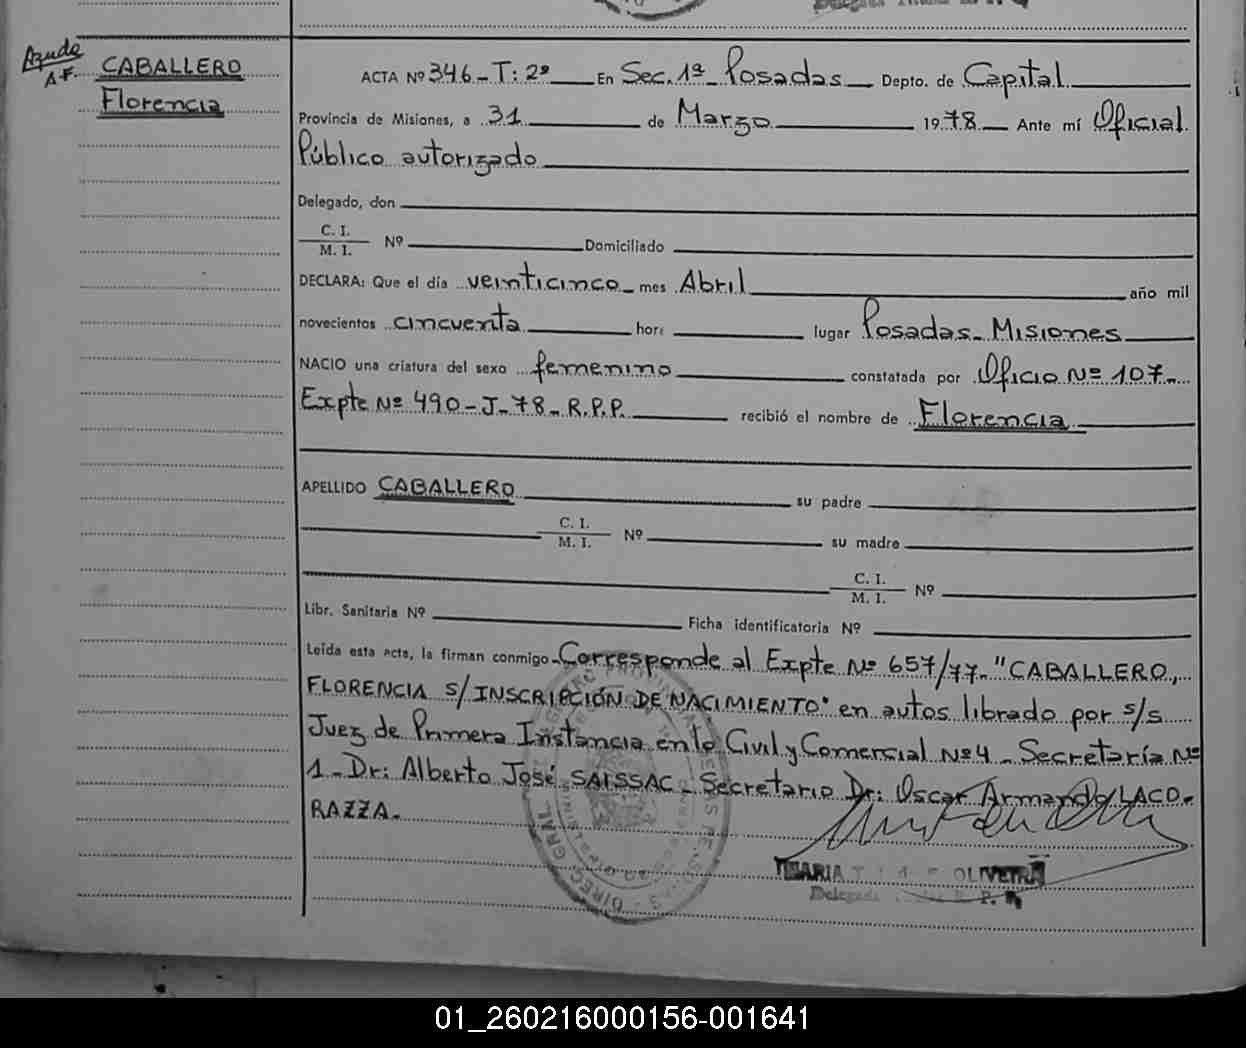 CABALLERO
Florencia
ACTA Nº 346 - T: 2º En Sec. 1ª Posadas Depto. de Capital
Provincia de Misiones, a 31 de Marzo 1978 Ante mí Oficial
Público autorizado
Delegado, don
C. I.
M. I. Nº Domiciliado
DECLARA: Que el día veinticinco mes Abril año mil
novecientos cincuenta hora lugar Posadas - Misiones
NACIO una criatura del sexo femenino constatada por Oficio Nº 107 -
Expte Nº 490 - J - 78 - R.P.P. recibió el nombre de Florencia
APELLIDO CABALLERO su padre
C. I.
M. I. Nº su madre
C. I.
M. I. Nº
Libr. Sanitaria Nº Ficha identificatoria Nº
Leída esta acta, la firman conmigo - Corresponde al Expte Nº 657/77 - "CABALLERO,
FLORENCIA s/ INSCRIPCIÓN DE NACIMIENTO" en autos librado por s/s
Juez de Primera Instancia en lo Civil y Comercial Nº 4 - Secretaría Nº
1 - Dr: Alberto José SAISSAC - Secretario Dr: Oscar Armando LACO-
RAZZA.
MARIA OLIVEIRA
Delegada
01_260216000156-001641